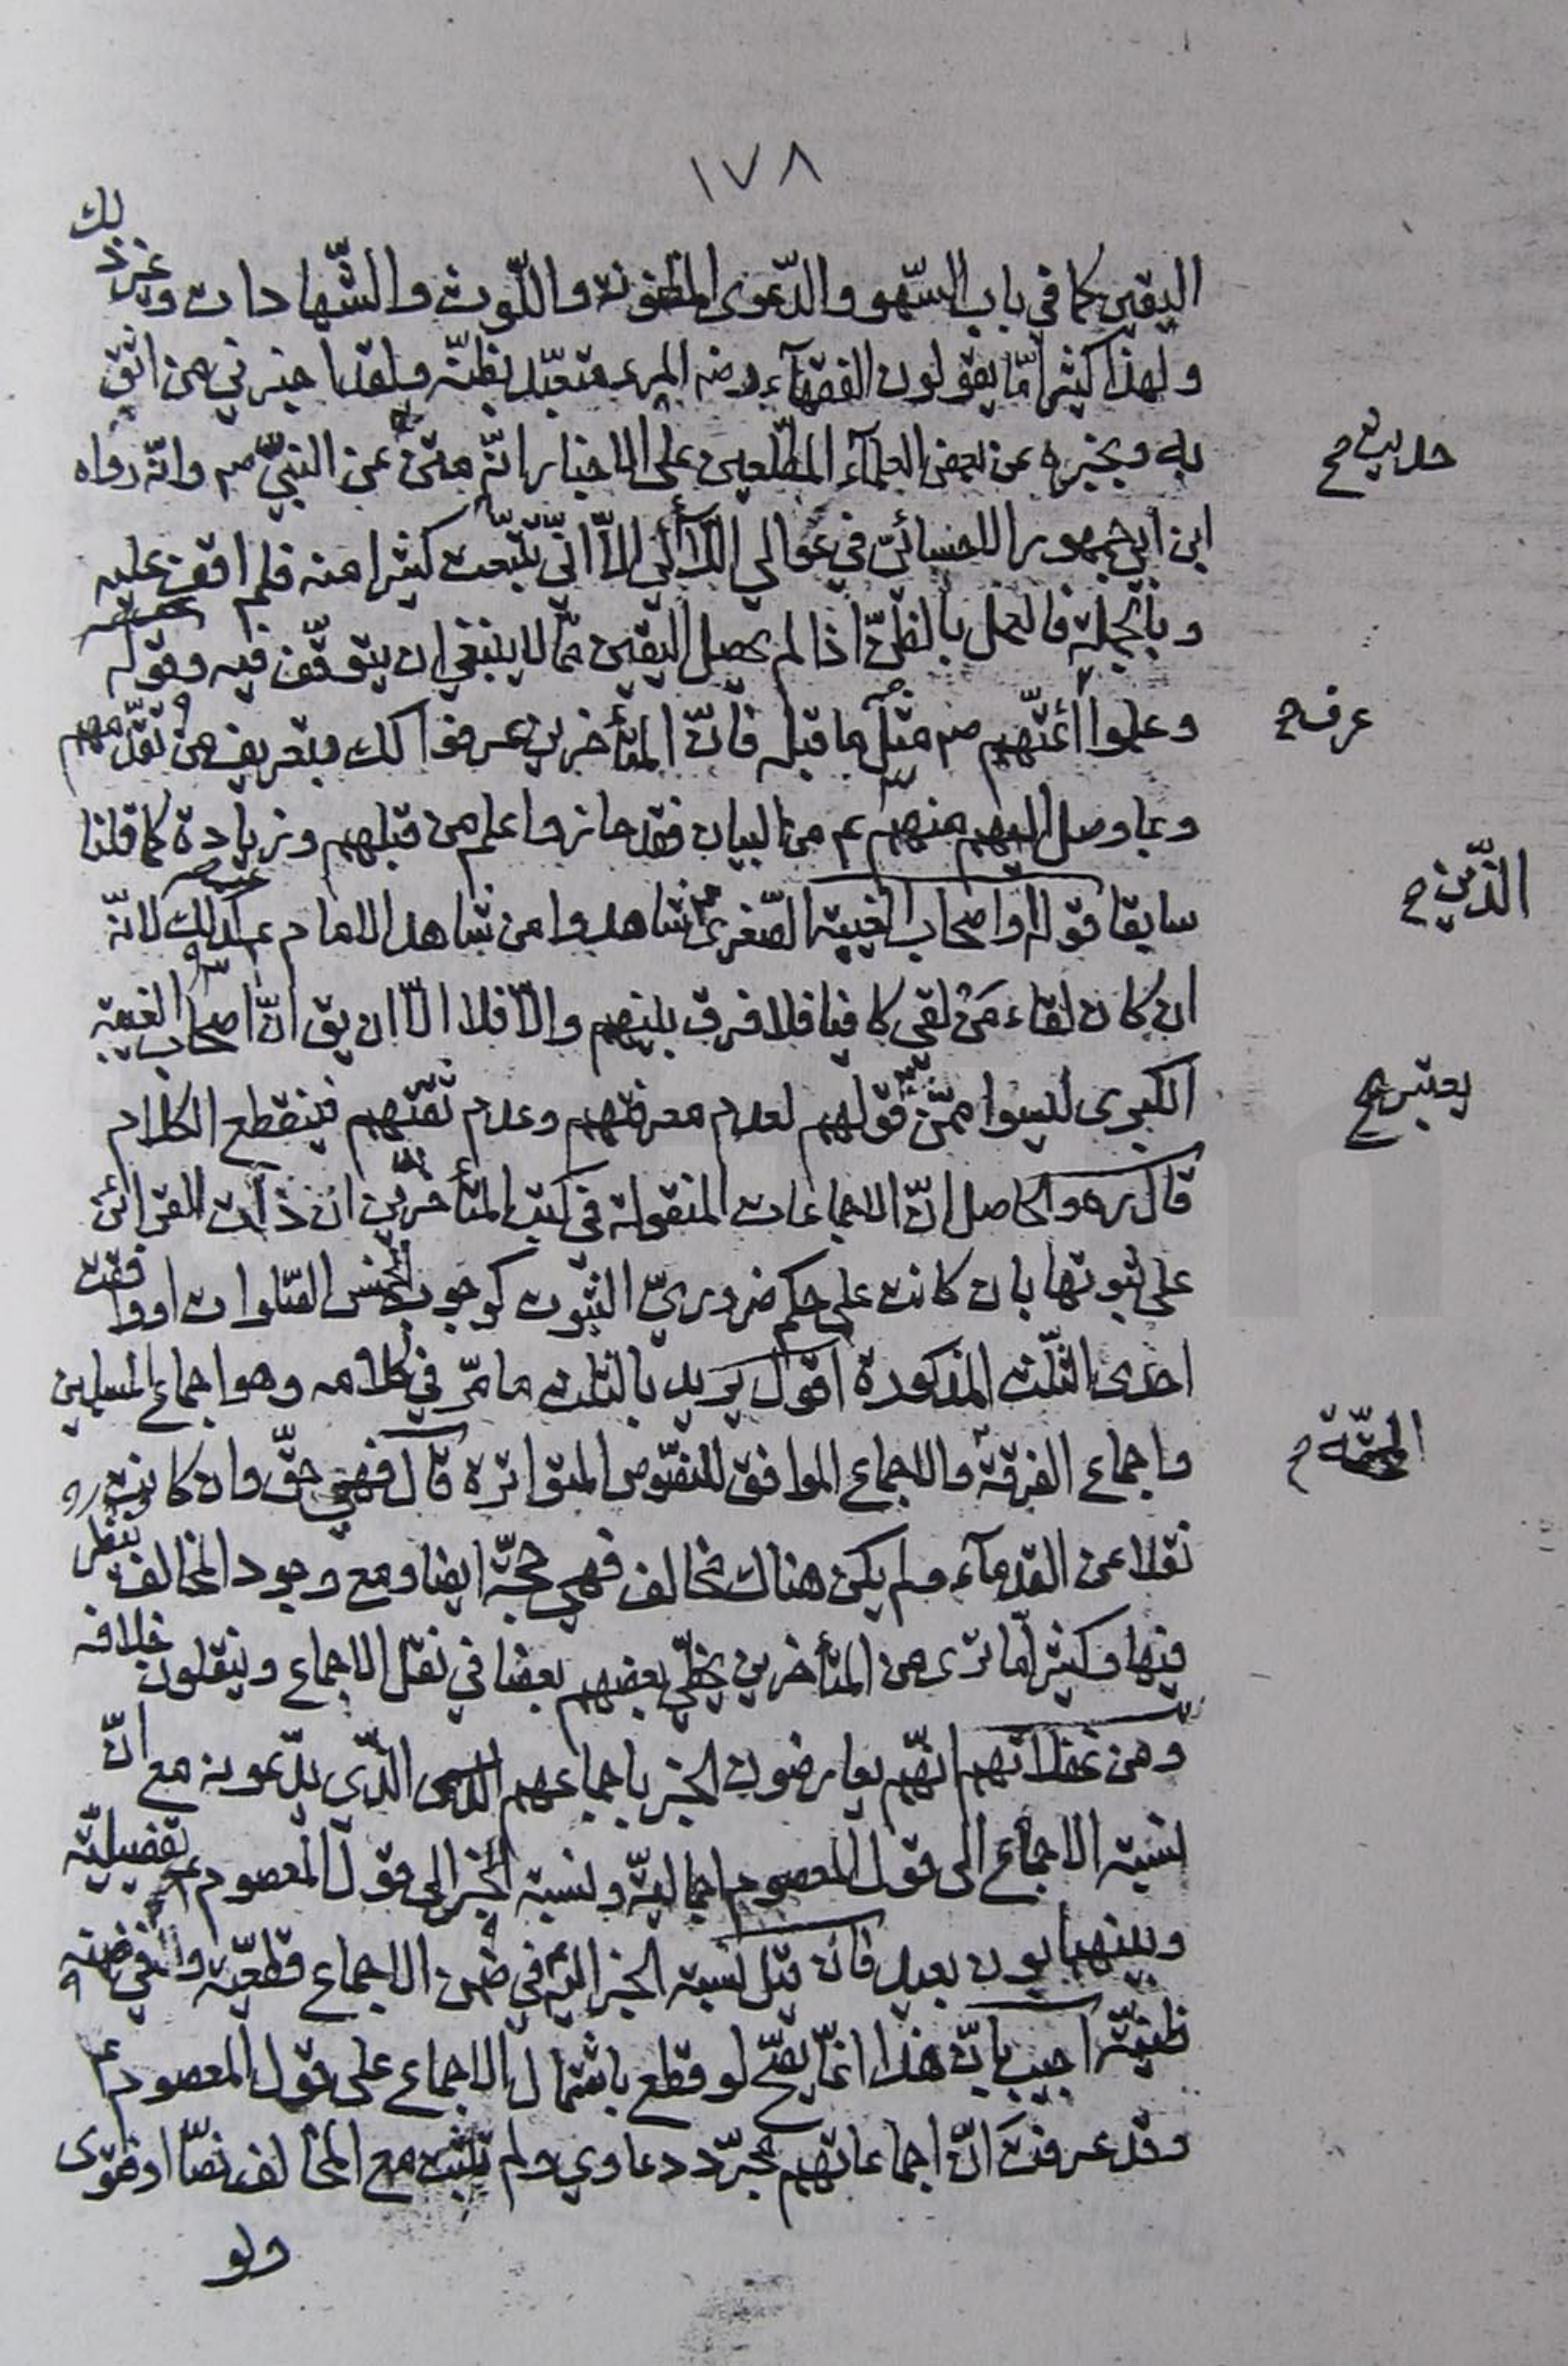 ١٧٨
اليقين كما في باب السّهو والدّعوى المظنونة واللّوث والشّهادات وغير ذلك
ولهذا كثيرا مّا يقولون الفقهآء رض المرء متعبّد بظنّه ولقد اخبرني من اثق
به ويخبره عن بعض العلمآء المطّلعين على الاخبار انّه عن النبيّ ص وانّه رواه
حديث ح
ابن ابي جمهور اللحسائيّ في غوالي اللآلي الّا انّي تتبّعت كثيرا منه فلم اقف عليه
وبالجملة فالعمل بالظنّ اذا لم يحصل اليقين ممّا لا ينبغي ان يتوقّف فيه وقوله
وعلموا أئمّتهم ص مثل ما قبله فانّ المتأخرين عرفوا كك وبتعريف من تقدّمهم
عرف ح
وبما وصل اليهم منهم ع من البيان فقد حازوا علم من قبلهم وزيادة كما قلنا
سابقا قوله واصحاب الغيبة الصّغرى شاهدوا من شاهد الامام ع كذلك لانّه
الذّين ح
ان كان لقاء مَنْ لقى كافيا فلا فرق بينهم والّا فلا الّا ان يق انّ اصحاب الغيبة
الكبرى ليسوا ممّن قولهم لعدم معرفتهم وعدم ثقتهم فينقطع الكلام
يعتبر ح
قال ره والحاصل انّ الاجماعات المنقولة في كتب المتأخرين ان دلت القرائن
على ثبوتها بان كانت على حكم ضروريّ الثبوت كوجوب الخمس الصّلوات او وافقت
احدى الثّلث المذكورة اقول يريد بالثلث ما مّر في كلامه وهو اجماع المسلمين
واجماع الفرقة والاجماع الموافق للنصّوص المتواترة قال فهي حقّ وان كانت
المحقّة ح
نقلا عن القدمآء ولم يكن هناك مخالف فهي حجّة ايضا ومع وجود المخالف ينظر
فيها وكثيرا مّا ترى من المتأخرين يخطّي بعضهم بعضا في نقل الاجماع وينقلون خلافه
ومن غفلاتهم انّهم يعارضون الخبر باجماعهم الذّي يدّعونه مع انّ
نسبة الاجماع الى قول المعصوم اجماليّة ونسبة الخبر الى قول المعصوم ع تفصيليّة
وبينهما بون بعيد فان قيل نسبة الخبر اليه في ضمن الاجماع قطعيّة
ظنيّة اجيب بانّ هذا انمّا يصّح لو قطع باشتمال الاجماع على قول المعصوم ع
وقد عرفت انّ اجماعاتهم مجرّد دعاوي ولم تثبت مع المخالف نصّا او فتوى
ولو